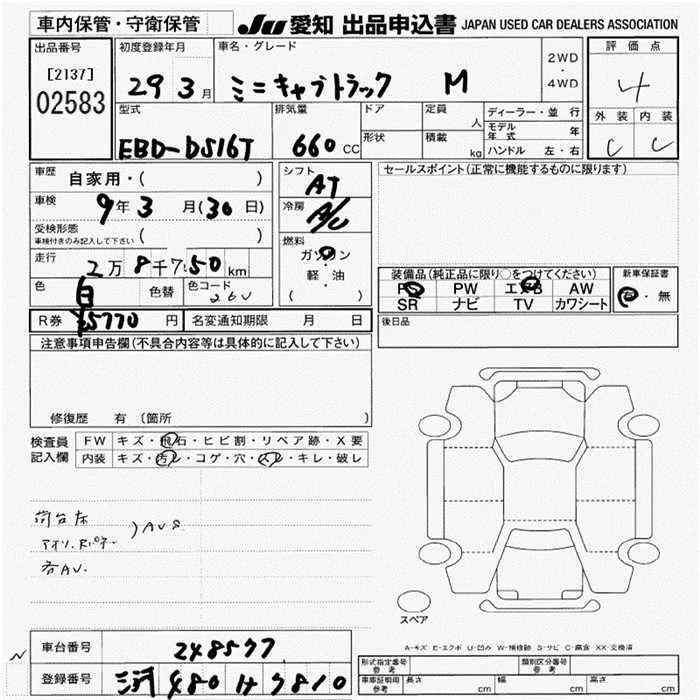 車内保管・守衛保管 JU 愛知 出品申込書 JAPAN USED CAR DEALERS ASSOCIATION
出品番号 [2137] 02583
初度登録年月 29 3月
車名・グレード ミニキャブトラック M
2WD・4WD
評価点 4
外装 C 内装 C
型式 EBD-DS16T
排気量 660cc
ドア 形状
定員 人 積載 kg
ディーラー・並行
モデル年式 年
ハンドル 左・右
車歴 自家用・( )
車検 9年3月(30日)
受検形態 車検付きのみ記入して下さい ( )
走行 2万8千750km
色 白 色替 色コード 26U
R券 ¥5770円 名変通知期限 月 日
シフト AT
冷房 A/C
燃料 ガソリン・軽油 ( )
セールスポイント(正常に機能するものに限ります)
装備品(純正品に限り○をつけてください)
PS PW エアB AW
SR ナビ TV カワシート
新車保証書 有・無
後日品
注意事項申告欄(不具合内容等は具体的に記入して下さい)
修復歴 有 (箇所 )
検査員記入欄
FW キズ・飛石・ヒビ割・リペア跡・X要
内装 キズ・汚レ・コゲ・穴・スレ・キレ・破レ
荷台床
アオリ、Rパネー
各AU.
スペア
A-キズ E-エクボ U-凹み W-補修跡 S-サビ C-腐食 XX-交換済
N
車台番号 248577
登録番号 三河 480 け 9810
形式指定番号 参考 類別区分番号 参考
車庫証明用 参考 長さ cm 幅 cm 高さ cm